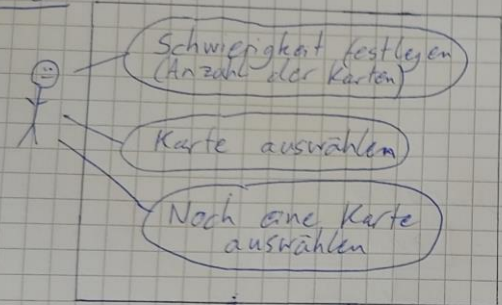 Schwierigkeit festlegen
(Anzahl der Karten)
Karte auswählen
Noch eine Karte
auswählen